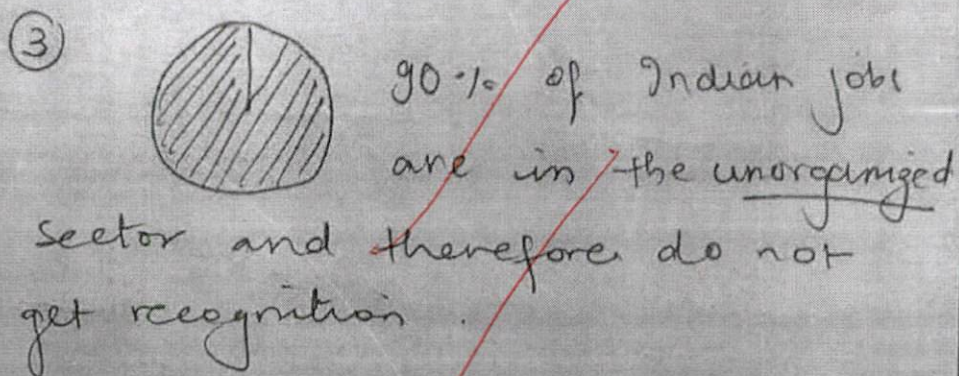 3
90% of Indian jobs
are in the unorganized
sector and therefore do not
get recognition.